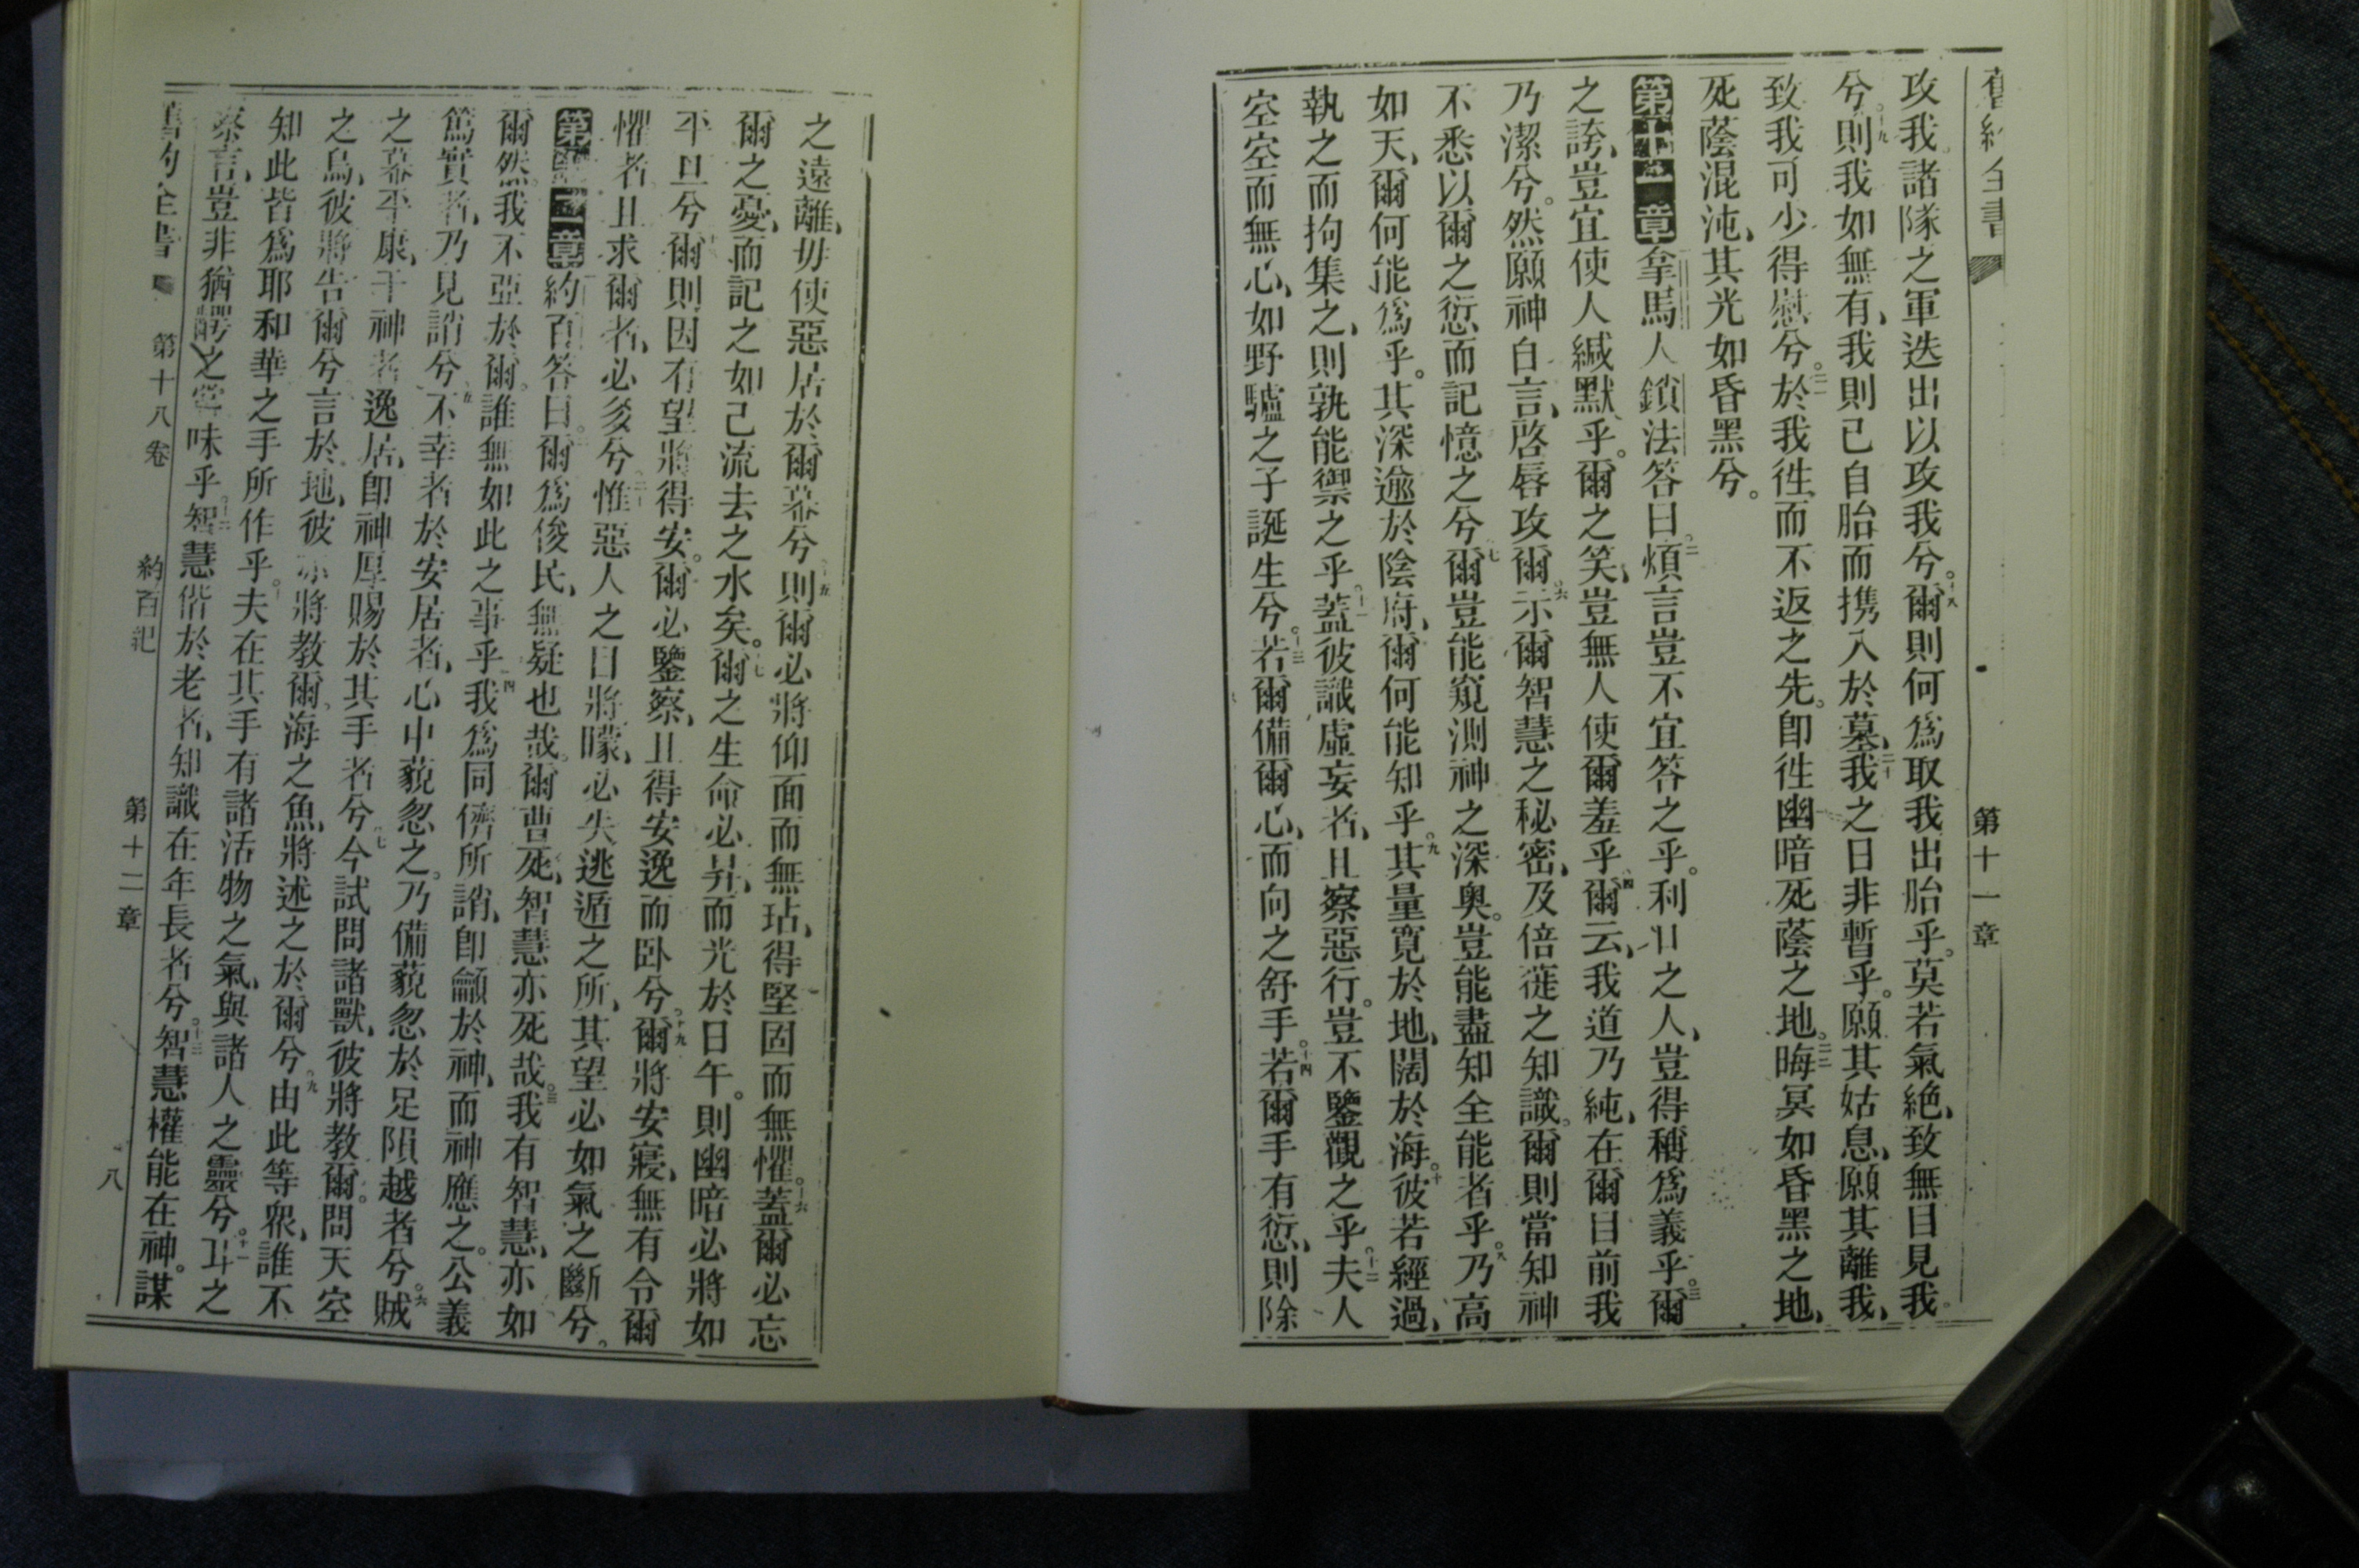 舊約全書 第十一章
攻我。諸隊之軍迭出以攻我兮。十八爾則何爲取我出胎乎。莫若氣絶、致無目見我。
兮。十九則我如無有、我則已自胎而携入於墓。二十我之日非暫乎。願其姑息、願其離我、
致我可少得慰兮。二一於我徃而不返之先。卽徃幽暗死蔭之地。二二晦冥如昏黑之地、
死蔭混沌、其光如昏黑兮。
第十一章 拿馬人鎖法答曰。二煩言豈不宜答之乎。利口之人、豈得稱爲義乎。三爾
之誇、豈宜使人緘默乎。爾之笑、豈無人使爾羞乎。四爾云、我道乃純、在爾目前我
乃潔兮。然願神自言、啓唇攻爾。六示爾智慧之秘密、及倍蓰之知識。爾則當知神
不悉以爾之愆而記憶之兮。七爾豈能窺測神之深奥。豈能盡知全能者乎。八乃高
如天、爾何能爲乎。其深逾於陰府、爾何能知乎。九其量寛於地、闊於海。十彼若經過、
執之而拘集之、則孰能禦之乎。十一蓋彼識虛妄者、且察惡行。豈不鑒觀之乎。十二夫人
空空而無心、如野驢之子誕生兮。十三若爾備爾心、而向之舒手。十四若爾手有愆、則除
之遠離、毋使惡居於爾幕兮。十五則爾必將仰面而無玷、得堅固而無懼。十六蓋爾必忘
爾之憂、而記之如已流去之水矣。十七爾之生命必昇、而光於日午。則幽暗必將如
平旦兮。十八爾則因有望將得安。爾必鑒察、且得安逸而卧兮。十九爾將安寢、無有令爾
懼者。且求爾者、必多兮。二十惟惡人之目將矇、必失逃遁之所、其望必如氣之斷兮。
第十二章 約百答曰。二爾爲俊民、無疑也哉。爾曹死、智慧亦死哉。三我有智慧、亦如
爾然。我不亞於爾。誰無如此之事乎。四我爲同儕所誚、卽籲於神、而神應之。公義
篤實者、乃見誚兮。五不幸者於安居者、心中藐忽之。乃備藐忽於足隕越者兮。六賊
之幕平康、干神者逸居、卽神厚賜於其手者兮。七今試問諸獸、彼將教爾。問天空
之鳥、彼將告爾兮。言於地、彼亦將教爾。海之魚、將述之於爾兮。九由此等衆、誰不
知此皆爲耶和華之手所作乎。十夫在其手有諸活物之氣、與諸人之靈兮。十一耳之
察言、豈非猶腭之嘗味乎。十二智慧偕於老者、知識在年長者兮。十三智慧權能在神。謀
舊約全書 第十八卷 約百記 第十二章 八